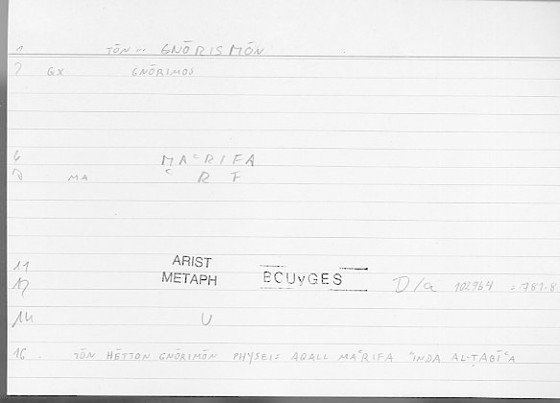 1 TŌN -- GNŌRISMŌN
2 GX GNŌRIMOS
6 MAʿRIFA
7 MA ʿ R F
11 ARIST
METAPH BCUyGES D/a 102964 = 781-8.
14 U
16 TŌN HĒTTON GNŌRIMŌN PHYSEI= AQALL MAʿRIFA ʿINDA AL-ṬABĪʿA